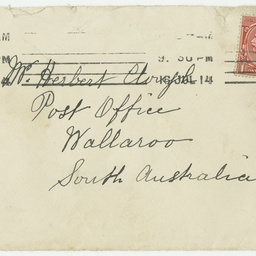 AM AM
PM 9. 30 PM
16 JUL 14
Mr. Herbert Clough
Post Office
Wallaroo
South Australia